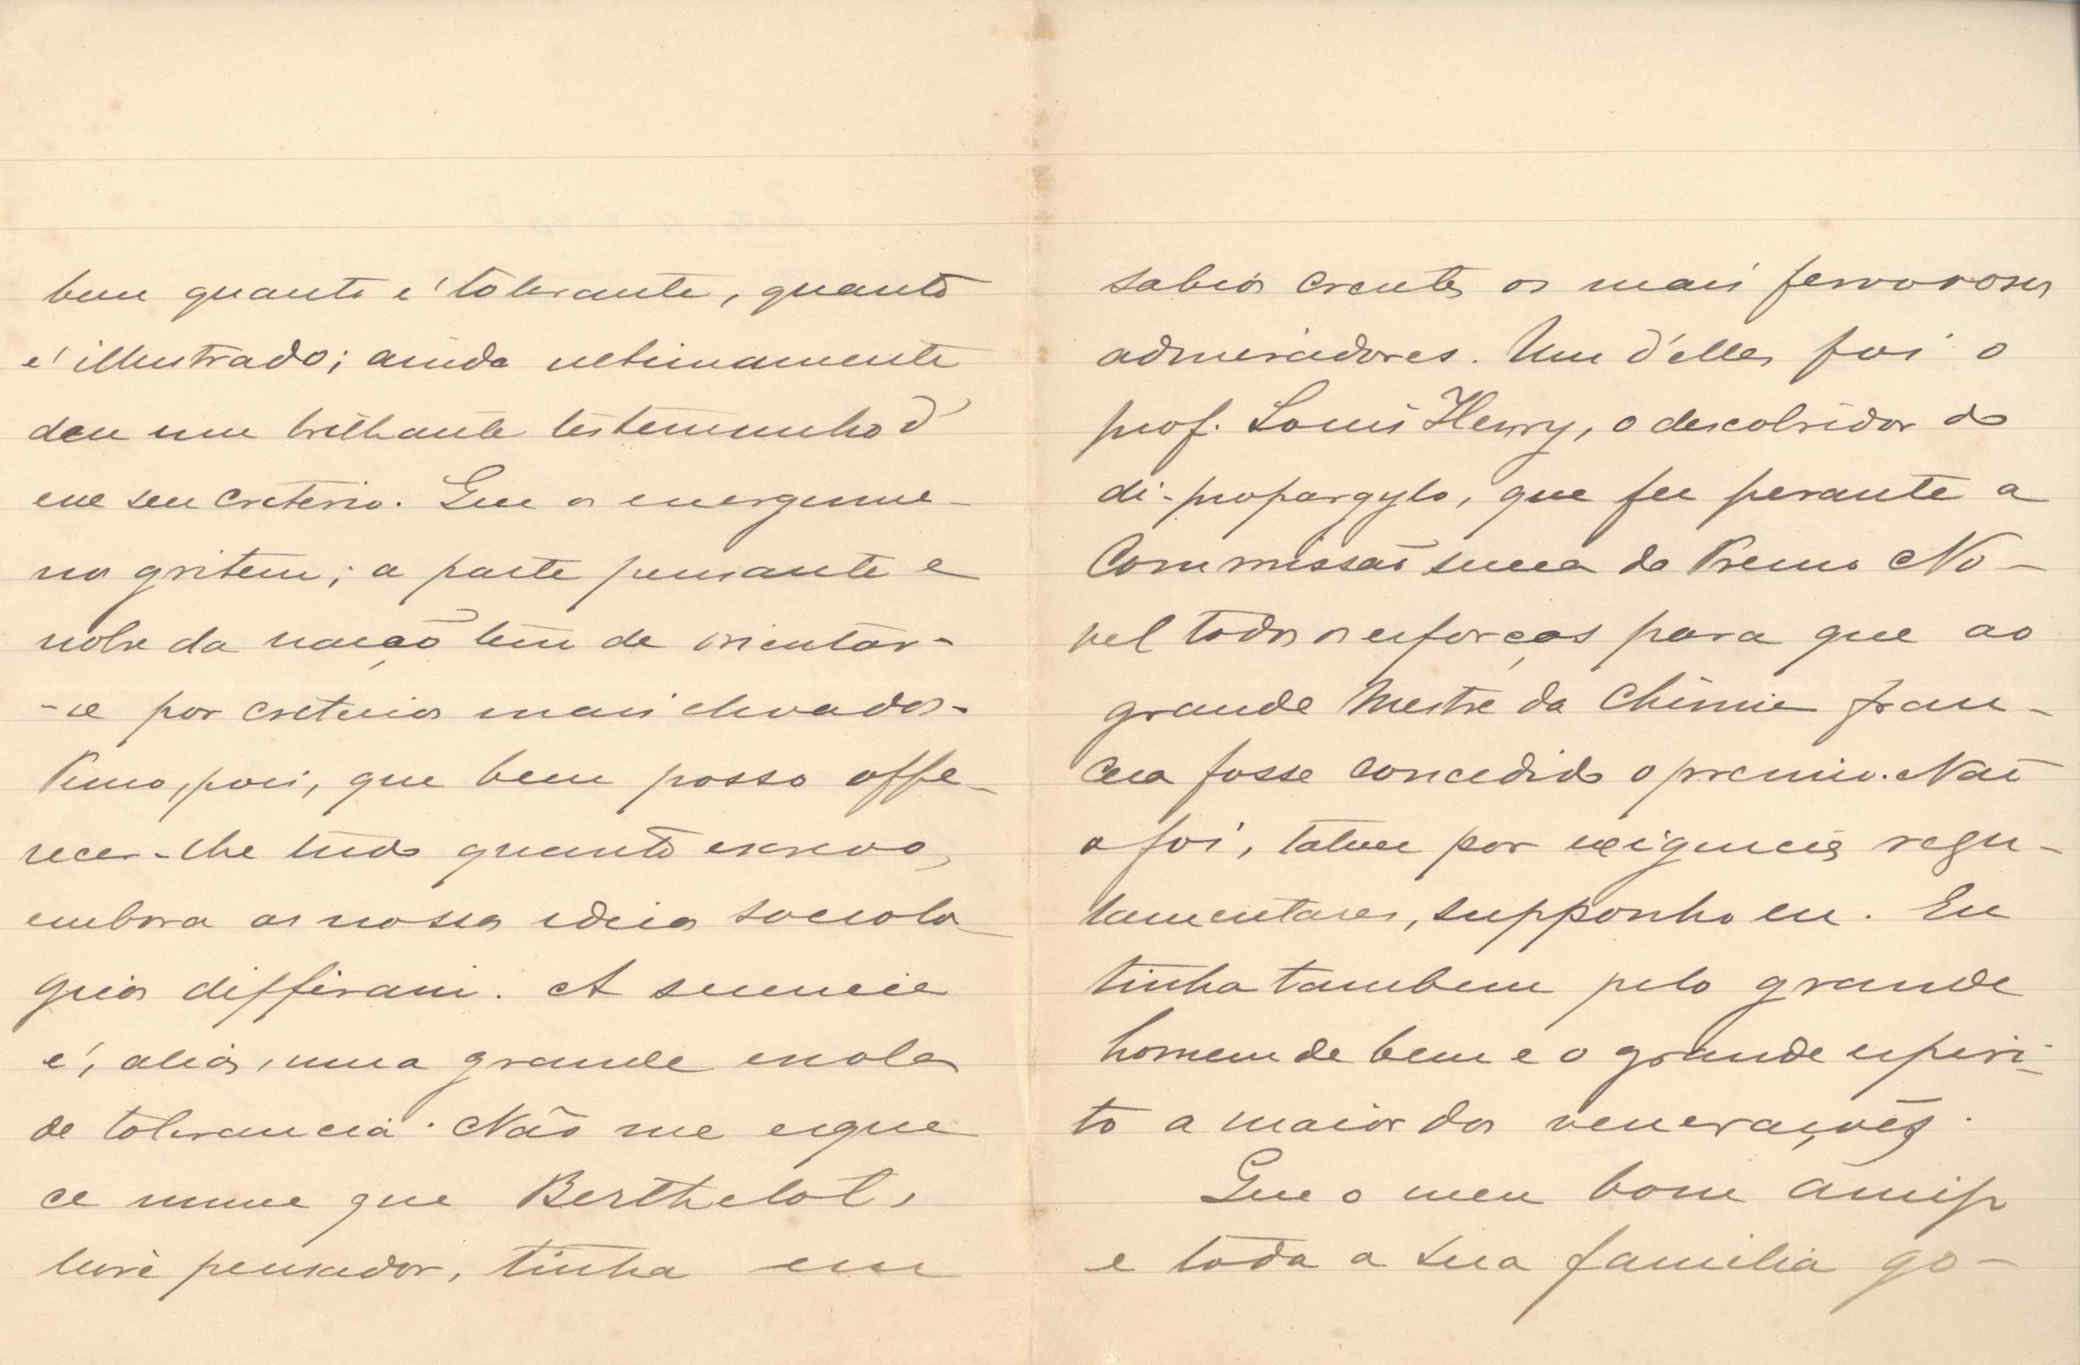 bem quanto é tolerante, quanto
é illustrado; ainda ultimamente
deu um brilhante testemunho d'
esse seu criterio. Que os energume-
nos gritem; a parte pensante e
nobre da nação tem de orientar-
-se por criterios mais elevados.
Penso, pois, que bem posso offe-
recer-lhe tudo quanto escrevo,
embora as nossas ideias sociolo-
gicas differam. A sciencia
é, aliás, uma grande escola
de tolerancia. Não me esque
ce nunca que Berthelot,
livre pensador, tinha em
sabios crentes os mais fervorosos
admiradores. Um d'elles foi o
prof. Louis Henry, o descobridor do
di-propargylo, que fez perante a
Commissão sueca do Premio No-
vel todos os esforços para que ao
grande Mestre da Chimie fran-
ceza fosse concedido o premio. Não
o foi, talvez por exigencias regu-
lamentares, supponho eu. Eu
tinha tambem pelo grande
homem de bem e o grande espiri-
to a maior das venerações.
Que o meu bom amigo
e toda a sua familia go-